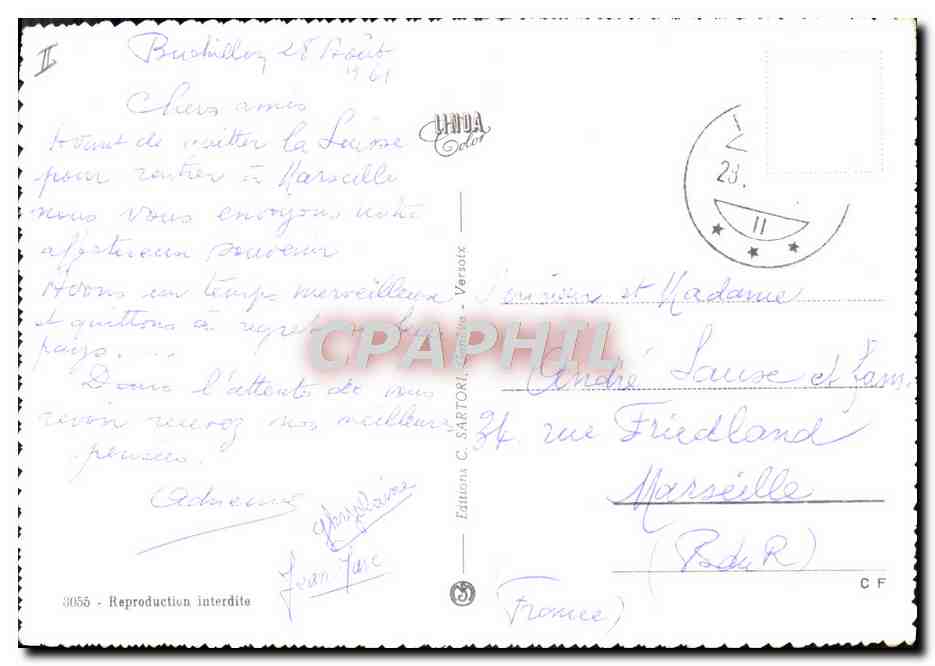 II
28 Août
1961
Chers amis
Avant de quitter la Suisse
pour rentrer à Marseille
nous vous envoyons notre
affectueux souvenir
Avons un temps merveilleux
et quittons à regret ce beau
pays....
Dans l'attente de vous
revoir recevez nos meilleures
pensées.
Adrienne
Jean Marc
3055 - Reproduction interdite
LINDA
Color
Editions C. SARTORI, Genève - Versoix
CPAPHIL
28.
II
Monsieur et Madame
André et fam.
34. rue Friedland
Marseille
(B du R)
(France)
C F